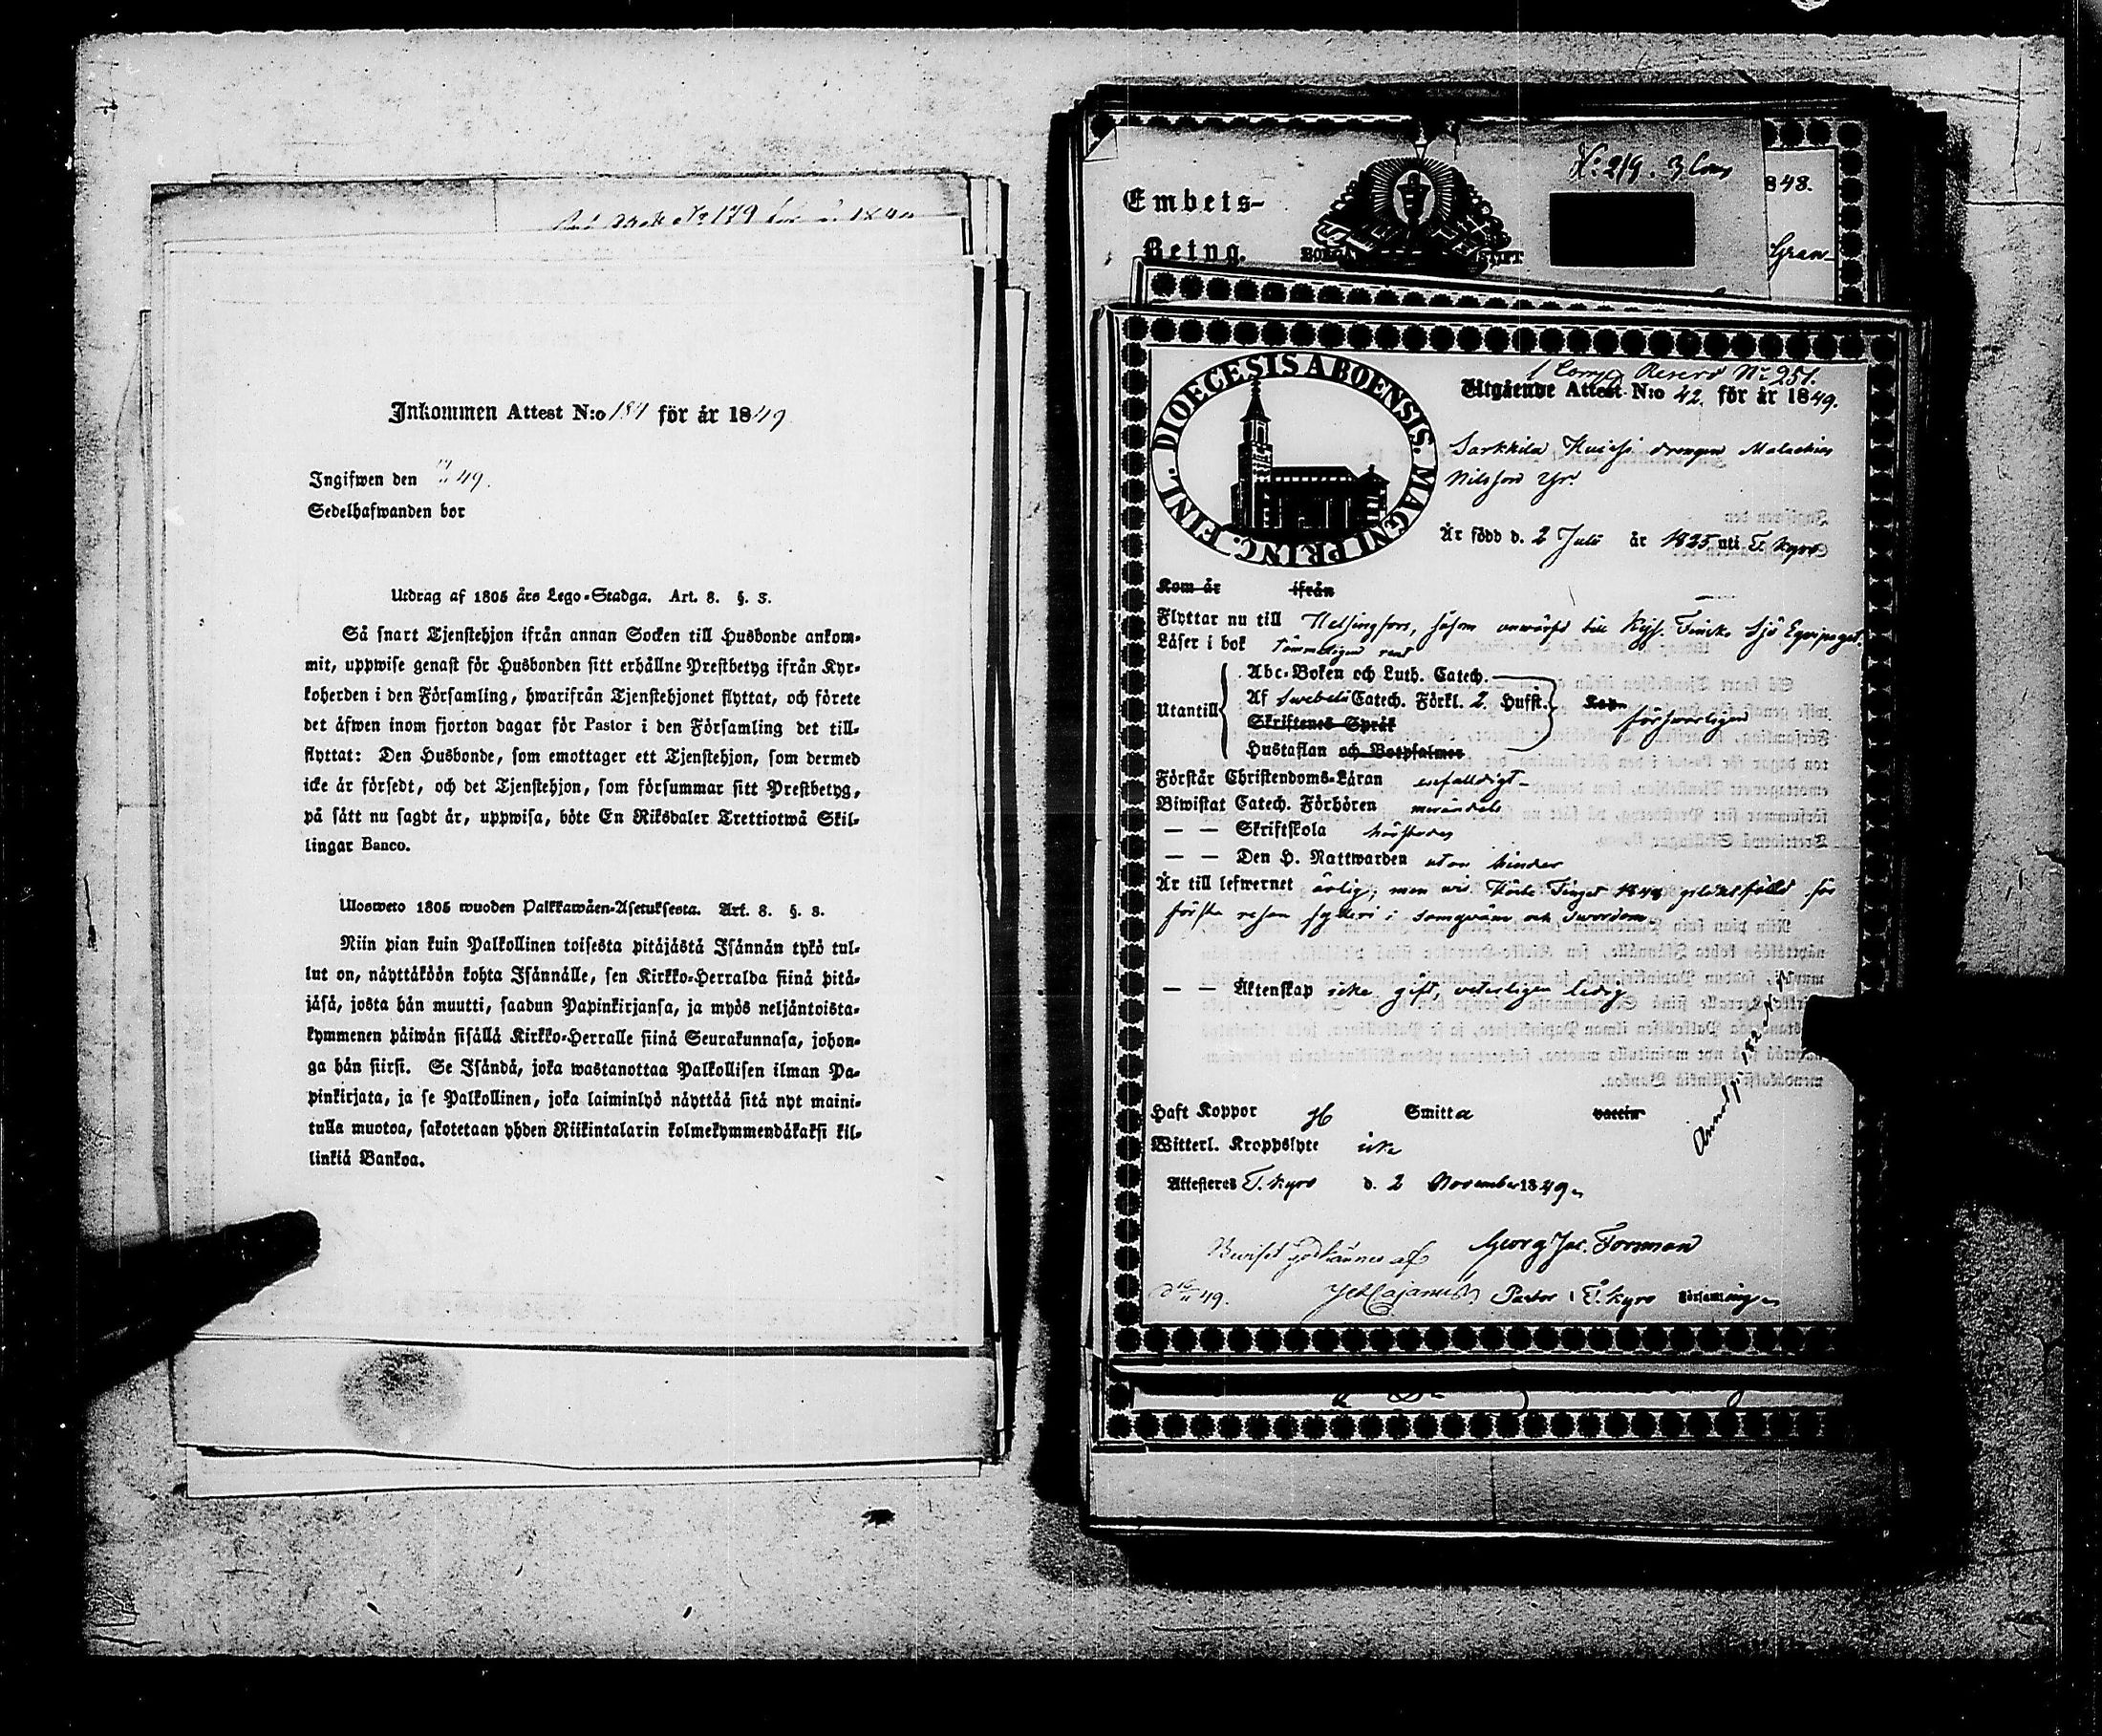 Inkommen Attest N:o 184 för år 1849
Ingifwen den 49.
Sedelhafwanden bor
Utdrag af 1805 års Lego-Stadga. Art. 8. §. 3.
Så snart Tjenstehjon ifrån annan Socken till Husbonde ankom-
mit, uppwise genast för Husbonden sitt erhållne Prestbetyg ifrån Kyr-
koherden i den Församling, hwarifrån Tjenstehjonet flyttat, och förete
det äfwen inom fjorton dagar för Pastor i den Församling det till-
flyttat: Den Husbonde, som emottager ett Tjenstehjon, som dermed
icke är försedt, och det Tjenstehjon, som försummar sitt Prestbetyg,
på sått nu sagdt är, uppwisa, böte En Riksdaler Trettiotwå Skil-
lingar Banco.
Ulosweto 1805 wuoden Palkkawäen-Asetuksesta. Art. 8. §. 3.
Niin pian kuin Palkollinen toisesta pitäjästä Isännän tykö tul-
lut on, näyttäköön kohta Isännälle, sen Kirkko-Herralda siinä pitä-
jäsä, josta hän muutti, saadun Papinkirjansa, ja myös neljäntoista-
kymmenen päiwän sisällä Kirkko-Herralle siinä Seurakunnasa, johon-
ga hän siirsi. Se Isändä, joka wastanottaa Palkollisen ilman Pa-
pinkirjata, ja se Palkollinen, joka laiminlyö näyttää sitä nyt maini-
tulla muotoa, sakotetaan yhden Riikintalarin kolmekymmendäkaksi kil-
linkiä Bankoa.
Embets-
Betyg.
N:219. 3 Com
848.
Gran-
DIOECESIS ABOENSIS. MAGNI PRINC. FINL.
1 Comp. Reserv No 251.
Utgående Attest N:o 42. för år 1849.
Sarkkila drengen Malachias
Nilsson Yr.
Är född d. 2 Juli år 1825 uti T. Kyro
Kom år ifrån
Flyttar nu till Helsingfors, såsom anwärfd till Kejs. Finska Sjö Equipaget.
Läser i bok rent
Utantill
Abc-Boken och Luth. Catech.
Af Swebelii Catech. Förkl. 2. Hufst.
Skriftenes Språk
Hustaflan och Botpsalmer
försvarligen
Förstår Christendoms-Läran enfalldigt
Biwistat Catech. Förhören
— — Skriftskola
— — Den H. Nattwarden utan hinder
Är till lefwernet ärlig; men wid Tinget sakfälld för
första resan i swordom
— — Äktenskap icke gift, veterligen ledig
Haft Koppor Smitta vaccin
Witterl. Kroppslyte icke
Attesteres T. Kyro d. 2 November 1849.
Beviset godkännes af Georg Jac. Forsman
49. Cajanus Pastor i T. Kyro Församling